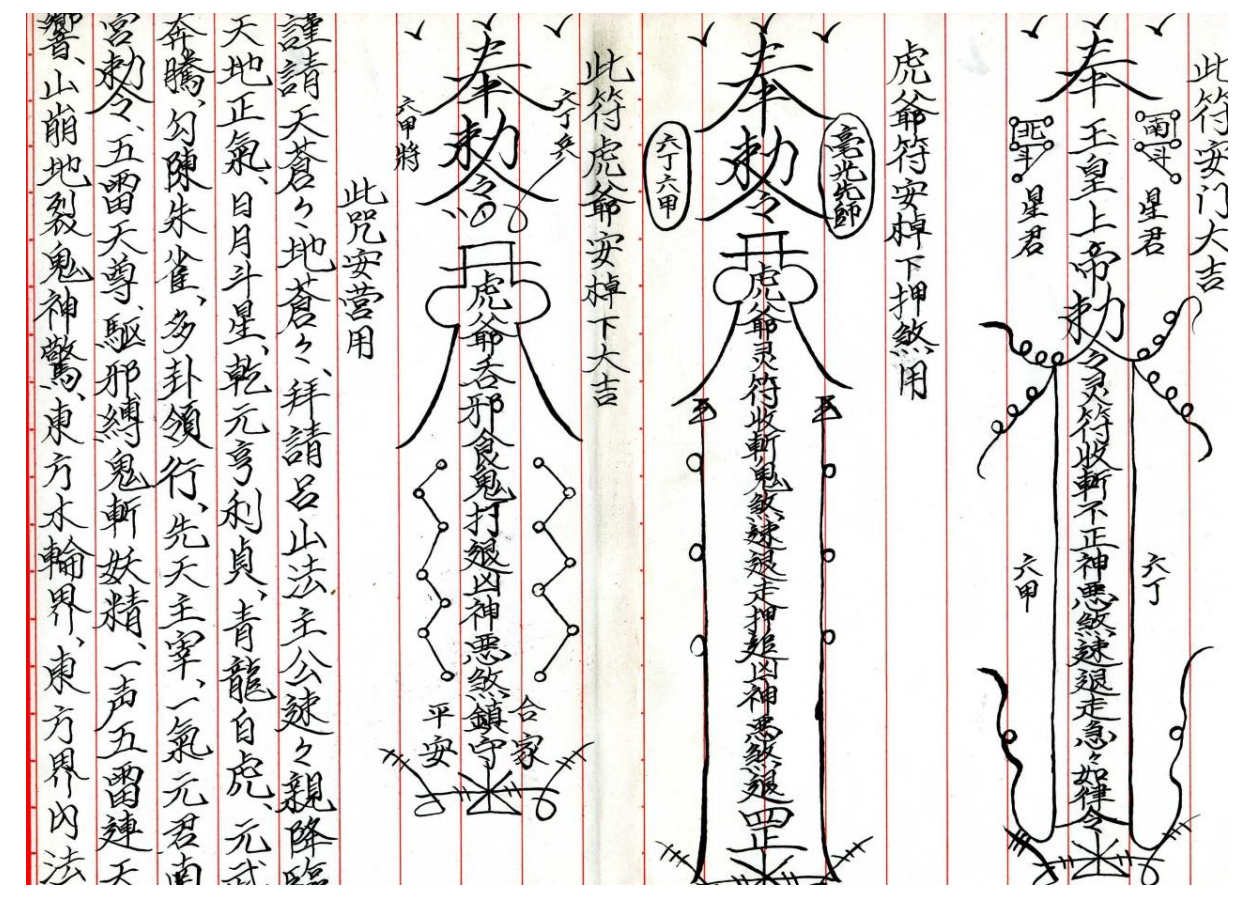 此符安门大吉
南斗
星君
奉玉皇上帝勅令灵符收斬不正神悪煞速退走急々如律令
北斗
星君
六丁
六甲
虎爺符安棹下押煞用
毫光先師
奉勅令虎爺灵符收斬鬼煞速退走押追凶神悪煞退罡
六丁六甲
此符虎爺安棹下大吉
六丁兵
奉勅令虎爺吞邪食鬼打退凶神悪煞鎮守
六甲將
合家
平安
此咒安營用
謹請天蒼々地蒼々、拜請呂山法主公速々親降臨
天地正氣、日月斗星、乾元亨利貞、青龍白虎、元武
奔騰、勾陳朱雀、多卦領行、先天主宰、一氣元君南
宮勅令、五雷天尊、駆邪縛鬼斬妖精、一声五雷連天
響、山崩地裂鬼神驚、東方木輪界、東方界內法